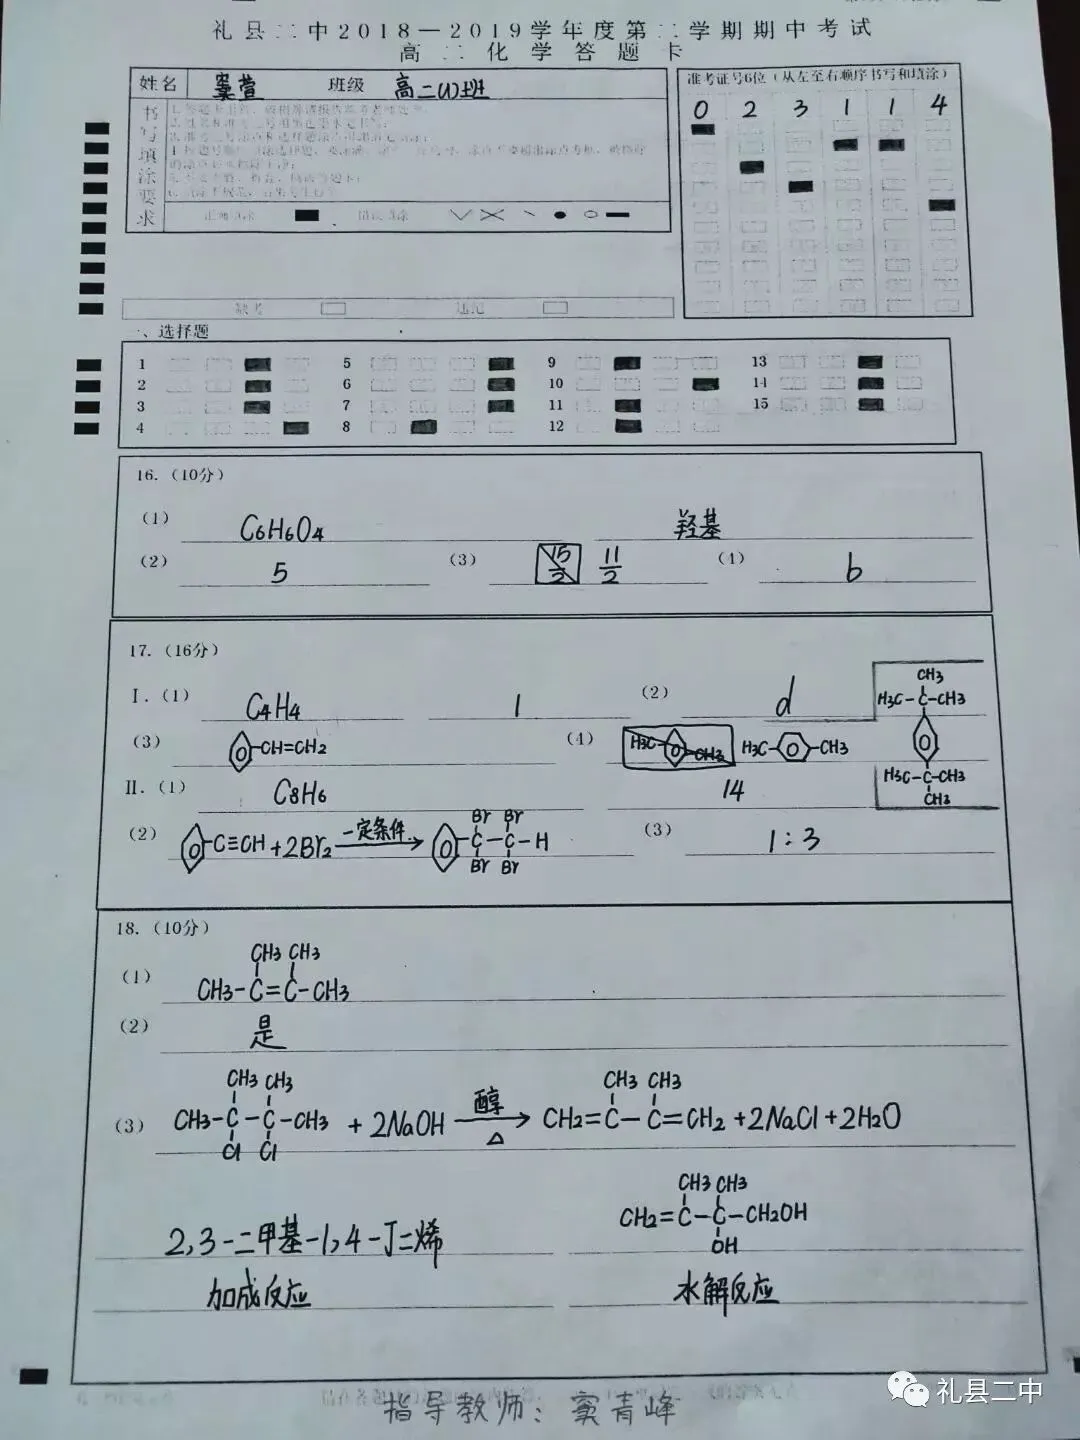 礼县二中2018—2019学年度第二学期期中考试
高二化学答题卡
姓名 窦萱 班级 高二(1)班
准考证号6位（从左至右顺序书写和填涂）
0 2 3 1 1 4
书写填涂要求
正确填涂 错误填涂
缺考 违纪
一、选择题
1 5 9 13
2 6 10 14
3 7 11 15
4 8 12
16.（10分）
（1） C6H6O4 羟基
（2） 5 （3） 15/2 11/2 （4） b
17.（16分）
I.（1） C4H4 1 （2） d
（3） CH=CH2 （4） H3C- -CH3 H3C- -CH3
CH3
H3C-C-CH3
H3C-C-CH3
CH3
II.（1） C8H6 14
（2） -C≡CH+2Br2 一定条件 Br Br -C-C-H Br Br （3） 1:3
18.（10分）
CH3 CH3
（1） CH3-C=C-CH3
（2） 是
CH3 CH3 CH3 CH3
（3） CH3-C-C-CH3 + 2NaOH 醇 △ CH2=C-C=CH2 +2NaCl+2H2O
Cl Cl
CH3 CH3
2,3-二甲基-1,4-丁二烯 CH2=C-C-CH2OH
OH
加成反应 水解反应
指导教师：窦青峰
礼县二中